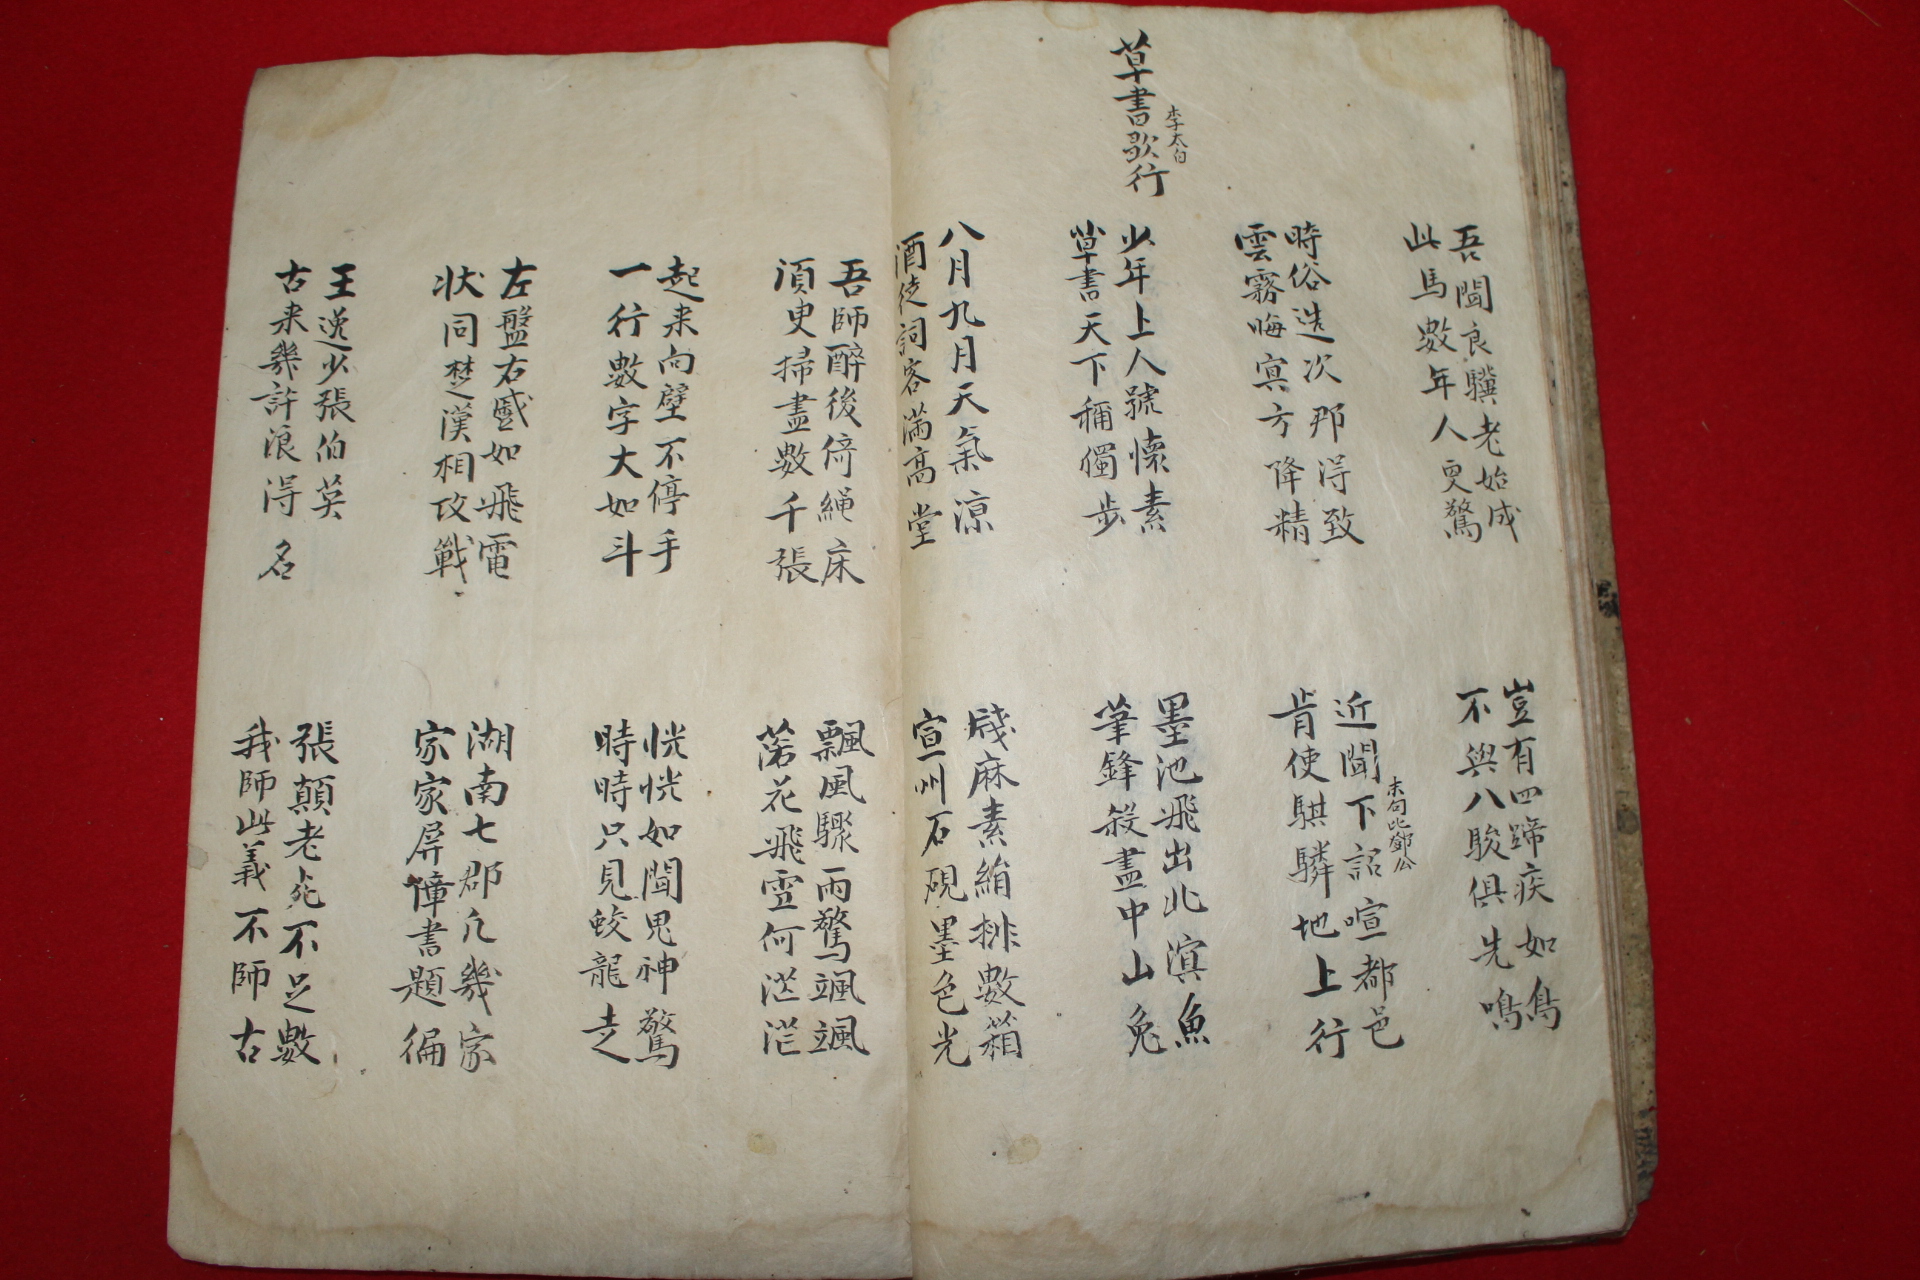 吾聞良驥老始成
此馬數年人更驚
豈有四蹄疾如鳥
不與八駿俱先鳴
時俗造次那得致
雲霧晦冥方降精
末句比鄧公
近聞下詔喧都邑
肯使騏驎地上行
草書歌行
李太白
少年上人號懷素
草書天下稱獨步
墨池飛出北溟魚
筆鋒殺盡中山兔
八月九月天氣凉
酒徒詞客滿高堂
牋麻素絹排數箱
宣州石硯墨色光
吾師醉後倚繩床
須臾掃盡數千張
飄風驟雨驚颯颯
落花飛雪何茫茫
起来向壁不停手
一行數字大如斗
恍恍如聞鬼神驚
時時只見蛟龍走
左盤右蹙如飛電
状同楚漢相攻戰
湖南七郡凡幾家
家家屏障書題徧
王逸少張伯英
古来幾許浪得名
張顛老死不足數
我師此義不師古